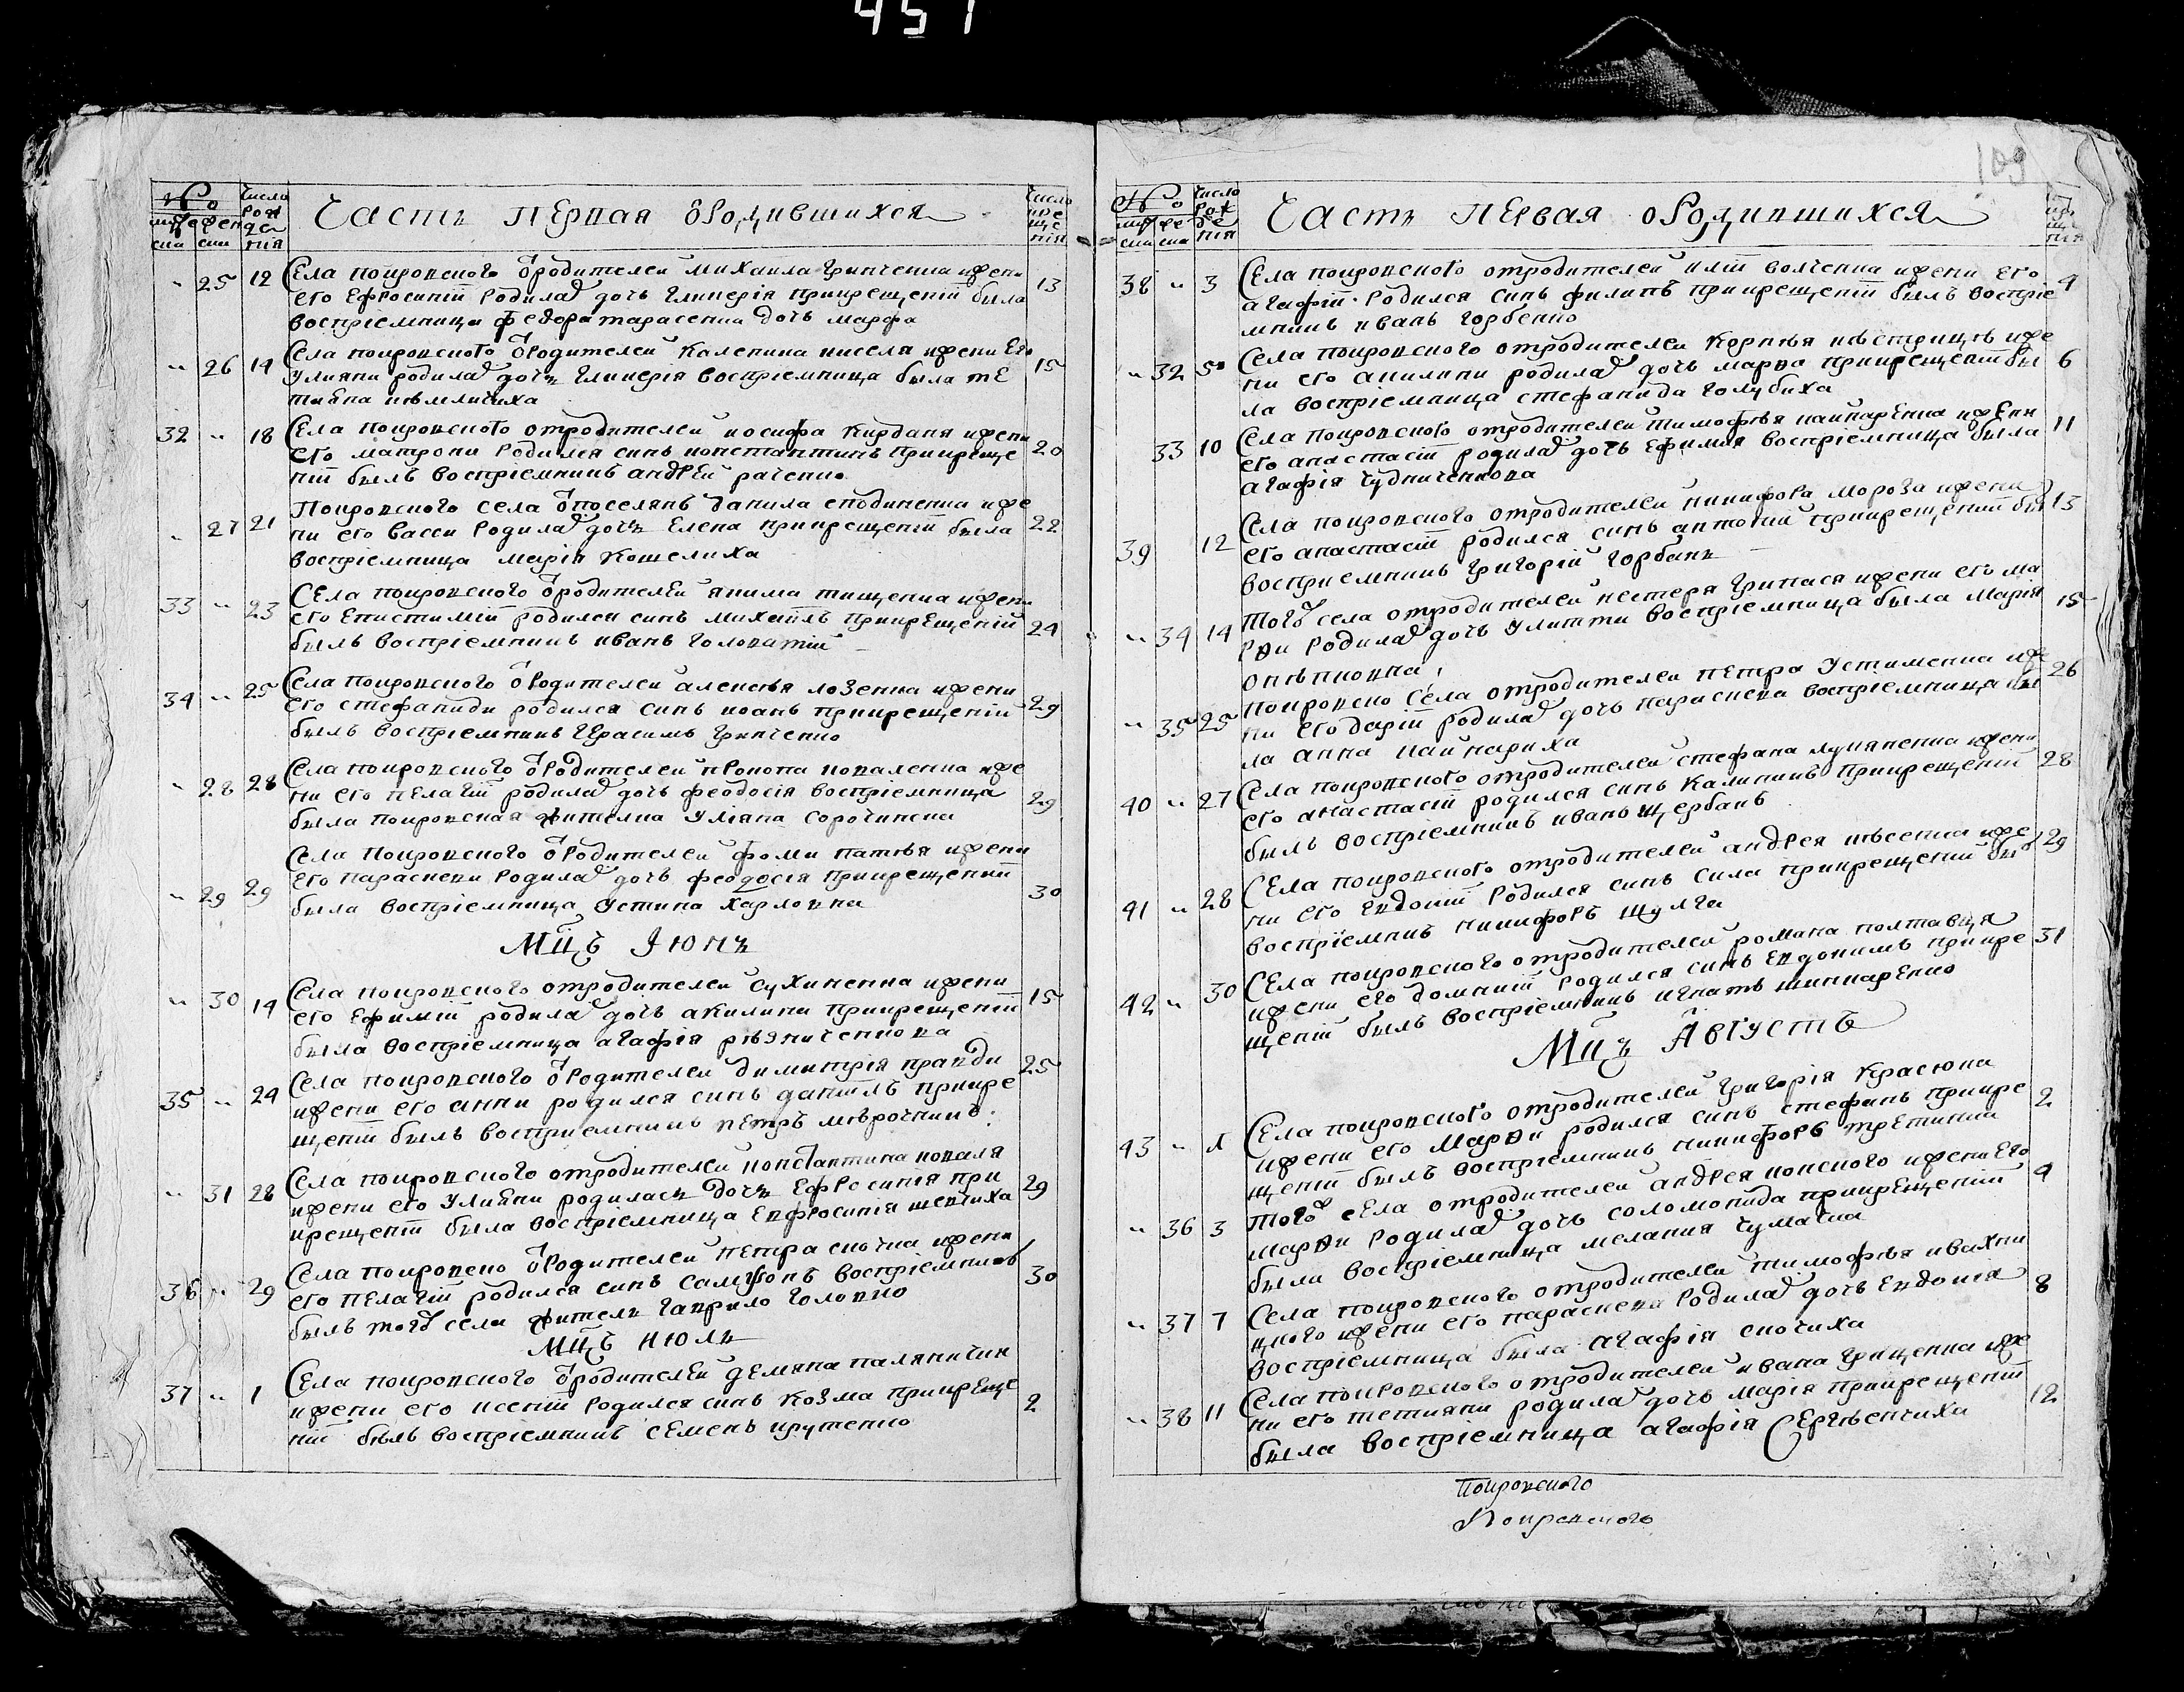 457
№ Число рожденія Часть первая ѡродившихся Число крещенія
мужеска женска
" 25 12 Села покровского ѿродителей михаила гринченка ижени 13
его ефросиніи родилас дочь гликерія прикрещеніи была
воспріемница федора тарасенка дочь марфа
" 26 14 Села покровского ѿродителей каленика киселя ижени его 15
улияни родилас дочь гликерія воспріемница была те
тияна немличиха
32 " 18 Села покровского отродителей иосифа кирданя ижени 20
его матрони родился синъ константинъ прикреще
ніи былъ воспріемникъ андрей раченко
" 27 21 Покровского села ѿпоселянъ данила сподиненка иже 22
ни его васси родилас дочь елена прикрещеніи была
воспріемница марія кошелиха
33 " 23 Села покровского ѿродителей якима тищенка ижени 24
его епистиміи родился синъ михаилъ прикрещеніи
былъ воспріемникъ иванъ головатій
34 " 25 Села покровского ѿродителей алексѣя лозенка ижени 29
его стефаниди родился синъ иоанъ прикрещеніи
былъ воспріемникъ герасимъ гринченко
" 28 28 Села покровского ѿродителей прокопа коваленка иже 29
ни его пелагіи родилас дочь феодосія воспріемница
была покровская жителка уліяна сорочинска
" 29 29 Села покровского ѿродителей фоми патѣя ижени 30
его параскеви родилас дочь феодосія прикрещеніи
была воспріемница устина харловна
Мцъ Іюнь
" 30 14 Села покровского отродителей сухиненка ижени 15
его ефиміи родилас дочь акилини прикрещеніи
была воспріемница агафія рѣзниченкова
35 " 24 Села покровского ѿродителей димитрія правди 25
ижени его анни родился синъ даниїлъ прикре
щеніи былъ восприемникъ петръ мѣрочникъ
" 31 28 Села покровского отродителей константина коваля 29
ижени его улияни родилась дочь ефросинія при
крещеніи была воспріемница евфросинія шевчиха
36 " 29 Села покровско ѿродителей петра скочка ижени 30
его пелагіи родился синъ сампсонъ воспріемникъ
былъ того села житель гаврило головко
Мцъ июль
37 " 1 Села покровского ѿродителей демяна палянички 2
ижени его ксеніи родился синъ козма прикреще
ніи былъ воспріемникъ семенъ крутенко
109
№ Число рожденія Часть первая ородившихся
мужеска женска
38 " 3 Села покровского отродителей иліи волченка ижени его 4
агафіи родился синъ филипъ прикрещеніи былъ воспріе
мникъ иванъ горбенко
" 32 5 Села покровского отродителей корнѣя нѣстрицѣ иже 6
ни его акилини родилас дочь марва прикрещеніи бы
ла воспріемница стефанида голубиха
33 10 Села покровского отродителей тимофѣя кайкаренка ижени 11
его анастасіи родилас дочь ефимія воспріемница была
агафія чудниченкова
39 12 Села покровского отродителей никифора мороза ижени 13
его анастасіи родился синъ антоній прикрещеніи бы
восприемникъ григорій горбань
" 34 14 того села отродителей нестера гринася ижени его ма 15
рви родилас дочь улитти воспріемница была марія
онѣпковна
" 35 25 Покровско села отродителей петра устименка иже 26
ни его дарій родилас дочь параскева воспріемница бы
ла анна кайкариха
40 " 27 Села покровского отродителей стефана лукяненка ижени 28
его анастасіи родился синъ калиникъ прикрещеніи
былъ воспріемникъ иванъ щербанъ
41 " 28 Села покровского отродителей андрея шѣсенка иже 29
ни его евдокіи родился синъ сила прикрещеніи бы
воспріемникъ никифоръ шулга
42 " 30 Села покровского отродителей романа полтавця 31
ижени его домникіи родился синъ евдокимъ прикре
щеніи былъ воспріемникъ игнатъ шинкаренко
Мцъ Августъ
43 " 1 Села покровского отродителей григорія красюка 2
ижени его марви родился синъ стефанъ прикре
щеніи былъ воспріемникъ никифоръ третиний
" 36 3 того села отродителей андрея конского ижени его 4
марви родилас дочь соломонида прикрещеніи
была воспріемница мелания чумачка
" 37 7 Села покровского отродителей тимофѣя ивахни 8
цкого ижени его параскеви родилас дочь евдокія
воспріемница была агафія скочиха
" 38 11 Села покровского отродителей ивана грищенка иже 12
ни его тетияни родилас дочь марія прикрещеніи
была воспріемница агафія Сергѣенчиха
покровского
Покровского